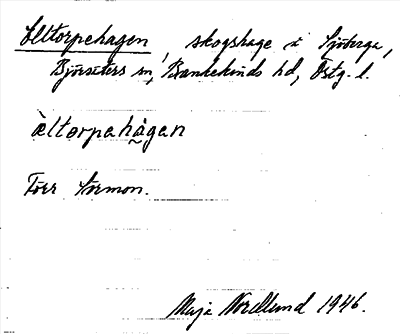 Eltorpehagen, skogshage i Sjöberga,
Björsäters sn, Bankekinds hd, Östg. l.
èltorpahàgan
Förr
Maja Nordlund 1946.